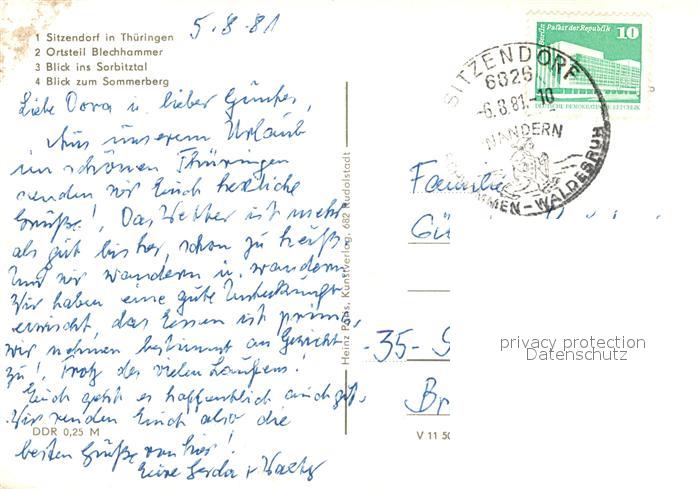 5.8.81
1 Sitzendorf in Thüringen
2 Ortsteil Blechhammer
3 Blick ins Sorbitztal
4 Blick zum Sommerberg
Liebe Dora u. lieber Günter,
Aus unserem Urlaub
im schönen Thüringen
senden wir Euch herzliche
Grüße! Das Wetter ist mehr
als gut bisher, schon zu heiß.
Und wir wandern u. wandern
Wir haben eine gute Unterkunft
erwischt, das Essen ist prima,
wir nehmen bestimmt an Gewicht
zu! Trotz des vielen Laufens!
Euch geht es hoffentlich auch gut.
Wir senden Euch also die
besten Grüße von hier!
Eure Gerda +
DDR 0,25 M
Heinz Paris, Kunstverlag, 682 Rudolstadt
V 11 50
Berlin Palast der Republik
10
DEUTSCHE DEMOKRATISCHE REPUBLIK
SITZENDORF
6826
-6.8.81.-10
WANDERN
-WALDESRUH
Familie
Gü
-35- S
Br
privacy protection
Datenschutz